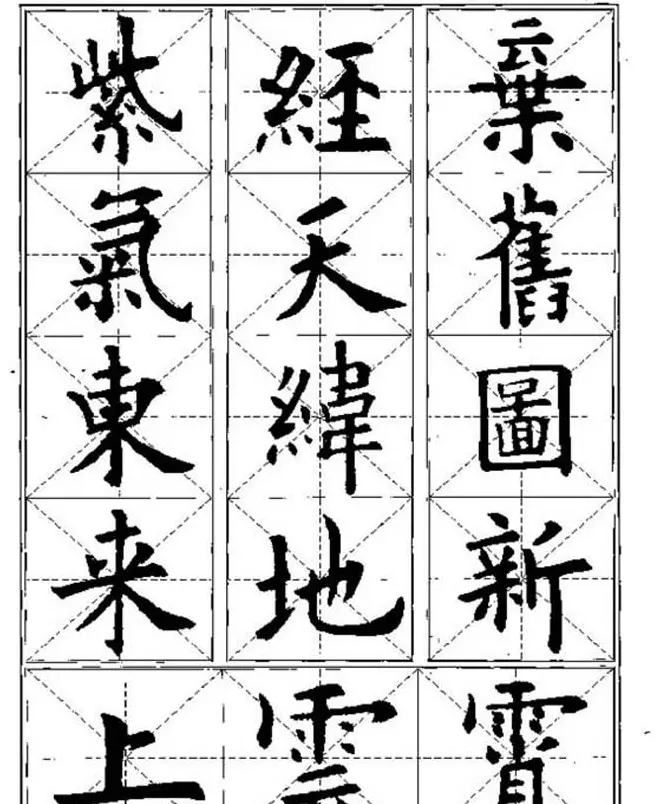 棄舊圖新
經天緯地
紫氣東来
上雲霄